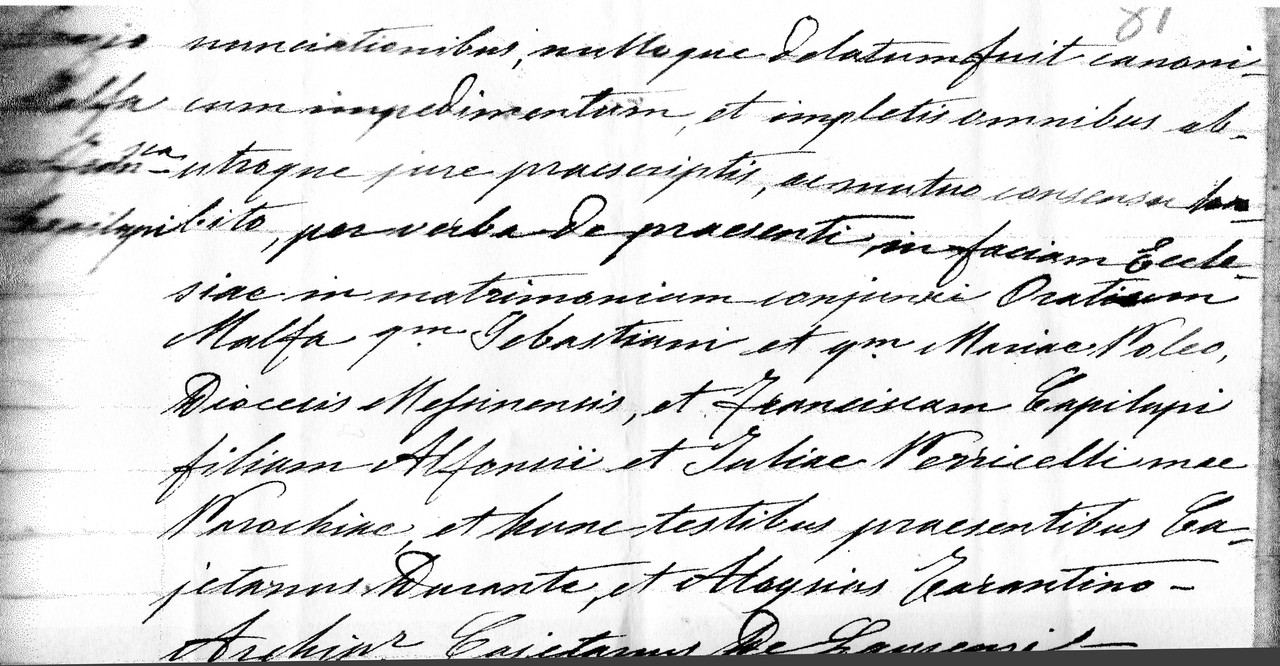 81
nunciationibus, nulloque delatum fuit canoni-
Malfa cum impedimentum, et impletis omnibus ab
utroque jure praescriptis, ac mutuo consensu ha-
Capilupi bito, per verba de praesenti, in faciam Eccle-
siae in matrimonium conjunxi Oratium
Malfa qm Sebastiani et qm Mariae Voleo,
Diocecis Messinensis, et Franciscam Capilupi
filiam Alfonsii et Juliae Verricelli mae
Parochiae, et hunc testibus praesentibus Ca-
jetanus Durante, et Aloysius Tarantino -
Archipr Cajetanus De